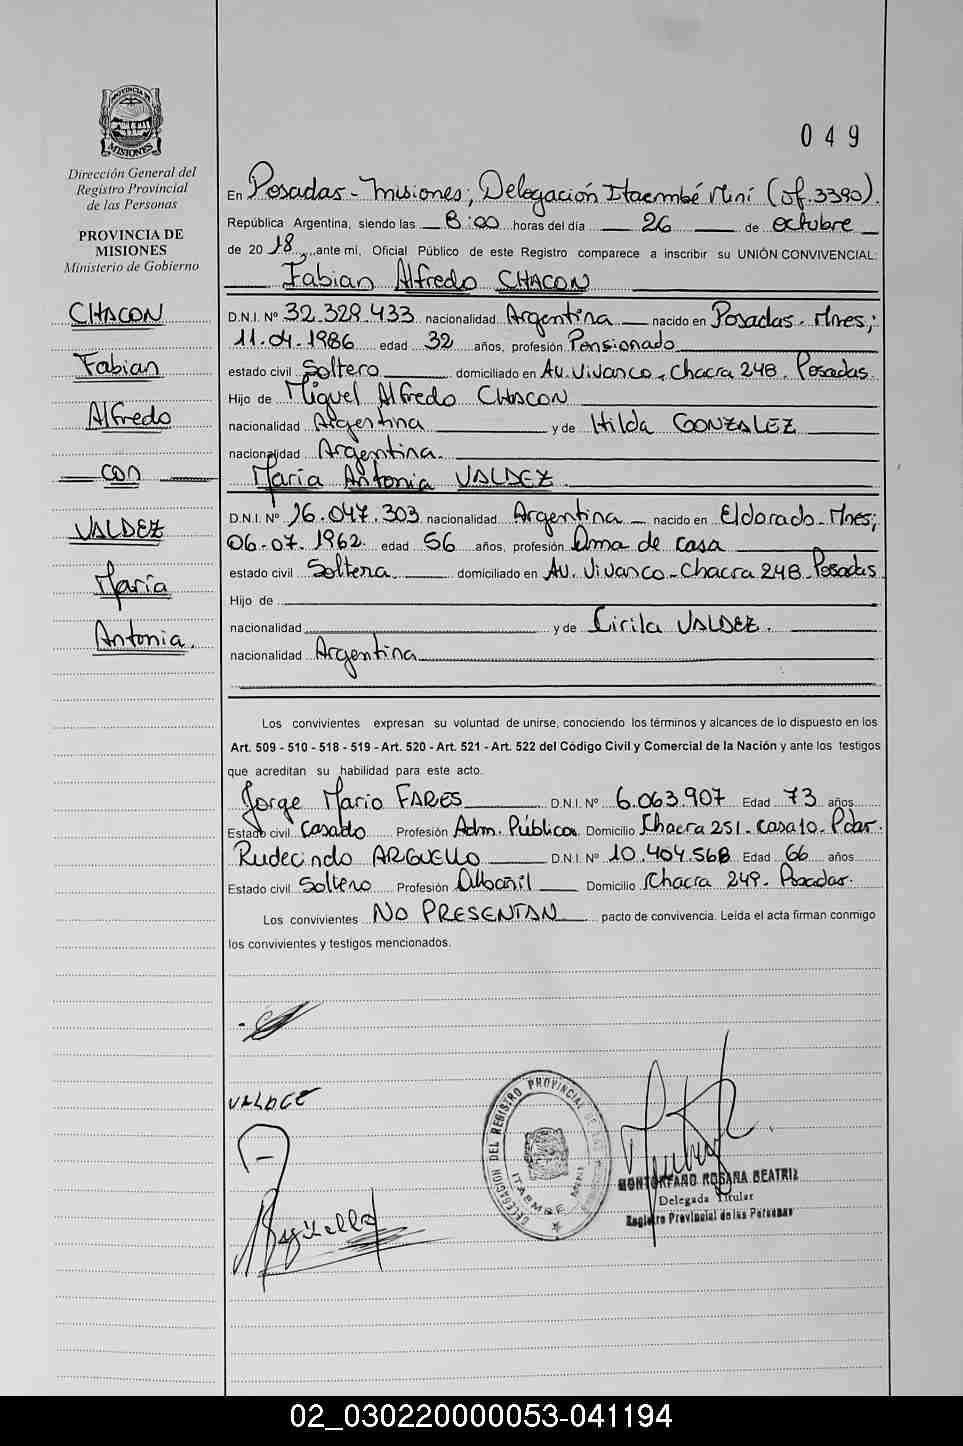 049
PROVINCIA DE
MISIONES
Dirección General del
Registro Provincial
de las Personas
PROVINCIA DE
MISIONES
Ministerio de Gobierno
CHACON
Fabian
Alfredo
con
VALDEZ
María
Antonia.
En Posadas - Misiones; Delegación Itaembé Miní (of. 3390).
República Argentina, siendo las 8:00 horas del día 26 de octubre
de 2018, ante mi, Oficial Público de este Registro comparece a inscribir su UNIÓN CONVIVENCIAL:
Fabian Alfredo CHACON
D.N.I. Nº 32.329.433 nacionalidad Argentina nacido en Posadas. Mnes;
11.04.1986 edad 32 años, profesión Pensionado
estado civil Soltero domiciliado en Av. Vivanco - Chacra 248. Posadas.
Hijo de Miguel Alfredo CHACON
nacionalidad Argentina y de Hilda GONZALEZ
nacionalidad Argentina.
María Antonia VALDEZ
D.N.I. Nº 16.047.303 nacionalidad Argentina nacido en Eldorado - Mnes;
06-07.1962. edad 56 años, profesión Ama de casa
estado civil Soltera domiciliado en Av. Vivanco - Chacra 248 - Posadas
Hijo de
nacionalidad y de Cirila VALDEZ.
nacionalidad Argentina
Los convivientes expresan su voluntad de unirse, conociendo los términos y alcances de lo dispuesto en los
Art. 509 - 510 - 518 - 519 - Art. 520 - Art. 521 - Art. 522 del Código Civil y Comercial de la Nación y ante los testigos
que acreditan su habilidad para este acto.
Jorge Mario FARES D.N.I. Nº 6.063.907 Edad 73 años
Estado civil Casado Profesión Adm. Público Domicilio Chacra 251 - casa 10 - Pdas.
Rudecindo ARGUELLO D.N.I. Nº 10.404.568 Edad 66 años
Estado civil Soltero Profesión Albañil Domicilio Chacra 249 - Posadas.
Los convivientes NO PRESENTAN pacto de convivencia. Leída el acta firman conmigo
los convivientes y testigos mencionados.
VALDEZ
Arguello
DELEGACION DEL REGISTRO PROVINCIAL DE LAS PERSONAS
ITAEMBE MINI
MONTORFANO ROSANA BEATRIZ
Delegada Titular
Registro Provincial de las Personas
02_030220000053-041194